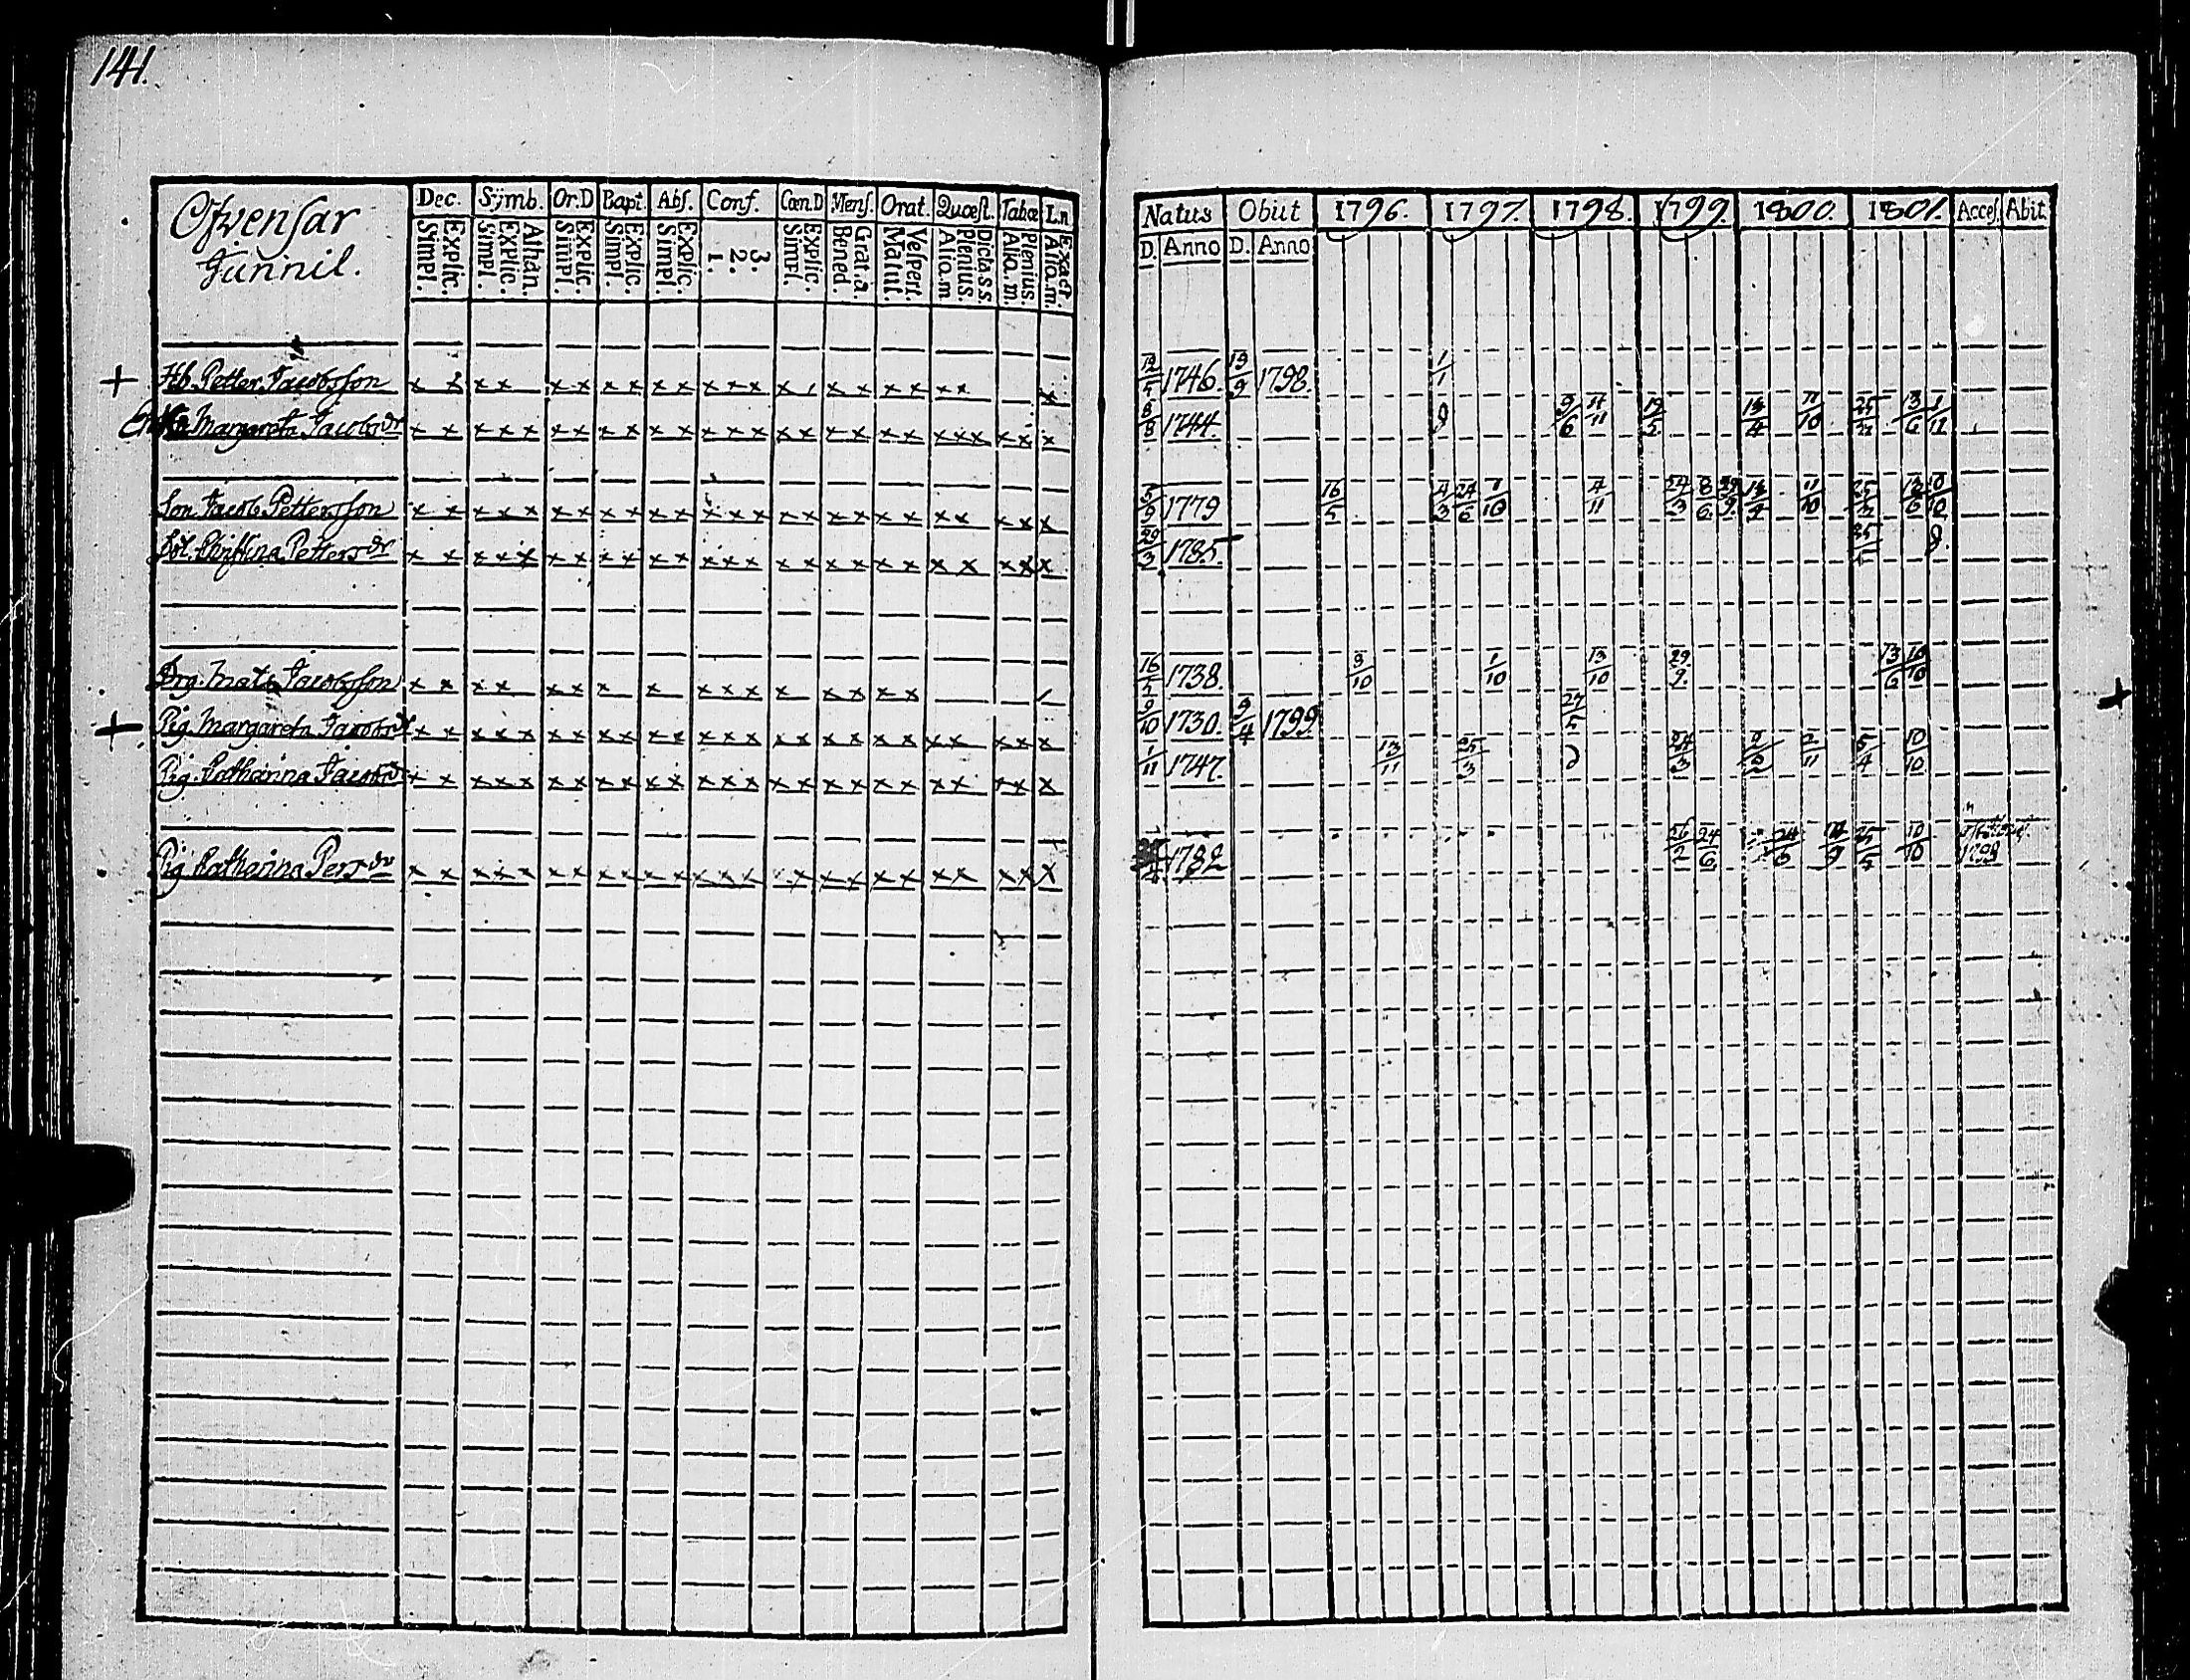 141.
Ofvensar
Junnil.
Dec. Sijmb. Or.D Bapt. Abs. Conf. Cœn.D Mens. Orat. Quœst. Tabœ L.n
Simpl. Explic. Simpl. Explic. Athan. Simpl. Explic. Simpl. Explic. Simpl. Explic. 1. 2. 3. Simpl. Explic. Bened. Grat.a. Matut. Vespert. Alio.m Plenius. Dicta.s.s. Alio.m. Plenius. Alio.m. Exact.
Natus Obiit 1796. 1797. 1798. 1799. 1800. 1801. Acces. Abit.
D. Anno D. Anno
+ Hb. Petter Jacobsson x x x x x x x x x x x x x x x x x x x x x
12/5 1746. 19/9 1798. 1/1
Margareta Jacobsdr x x x x x x x x x x x x x x x x x x x x x x x x x x
8/8 1744. 9/6 11/11 19/5 13/4 11/10 13/6 1/11
Son Jacob Pettersson x x x x x x x x x x x x x x x x x x x x x x x x x
5/9 1779 16/5 4/3 24/6 1/10 4/11 24/3 8/6 29/9 11/10 13/6 10/10
Dot. Christina Pettersdr x x x x x x x x x x x x x x x x x x x x x x x x x
29/3 1785
Drg. Mats Jacobsson x x x x x x x x x x x x x x x x x
16/5 1738. 9/10 1/10 13/10 29/9 13/6 10/10
+ Pig. Margareta Jacobsdr x x x x x x x x x x x x x x x x x x x x x x x x x
9/10 1730. 9/4 1799 27/5 +
Pig. Catharina Jacobsdr x x x x x x x x x x x x x x x x x x x x x x x x x
1/11 1747. 13/11 25/3 24/3 2/11 5/4 10/10
Pig Catharina Persdr x x x x x x x x x x x x x x x x x x x x x x x x x
1782 24/6 24/6 10/10